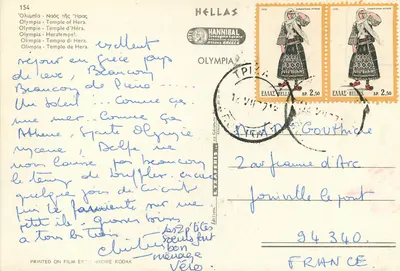 154
Ολυμπία - Ναός της Ήρας
Olympia - Temple of Hera
Olympia - Temple d'Héra
Olympia - Heratempel
Olympia - Tempio di Hera
Olympia - Templo de Hera
HELLAS
HANNIBAL
OLYMPIA
ΕΛΛΑΣ-HELLAS ΔΡ 2,50
ΕΛΛΑΣ-HELLAS ΔΡ 2,50
excellent
séjour en Grèce pays
de rêve. Beaucoup
Beaucoup de
Un Soleil ... Comme ça
une mer.. Comme ça
Athène, Sparte Olympie
Mycène, Delfe ne
nous laisse pas beaucoup
le temps de souffler. encore
quelques jours de circuit
puis le farniente sur une
petite île. Grosses bises
à tous
les 2 p'tites
bon
ménage
2 av Jeanne d'Arc
Joinville le pont
94340.
FRANCE
PRINTED ON FILM KODAK